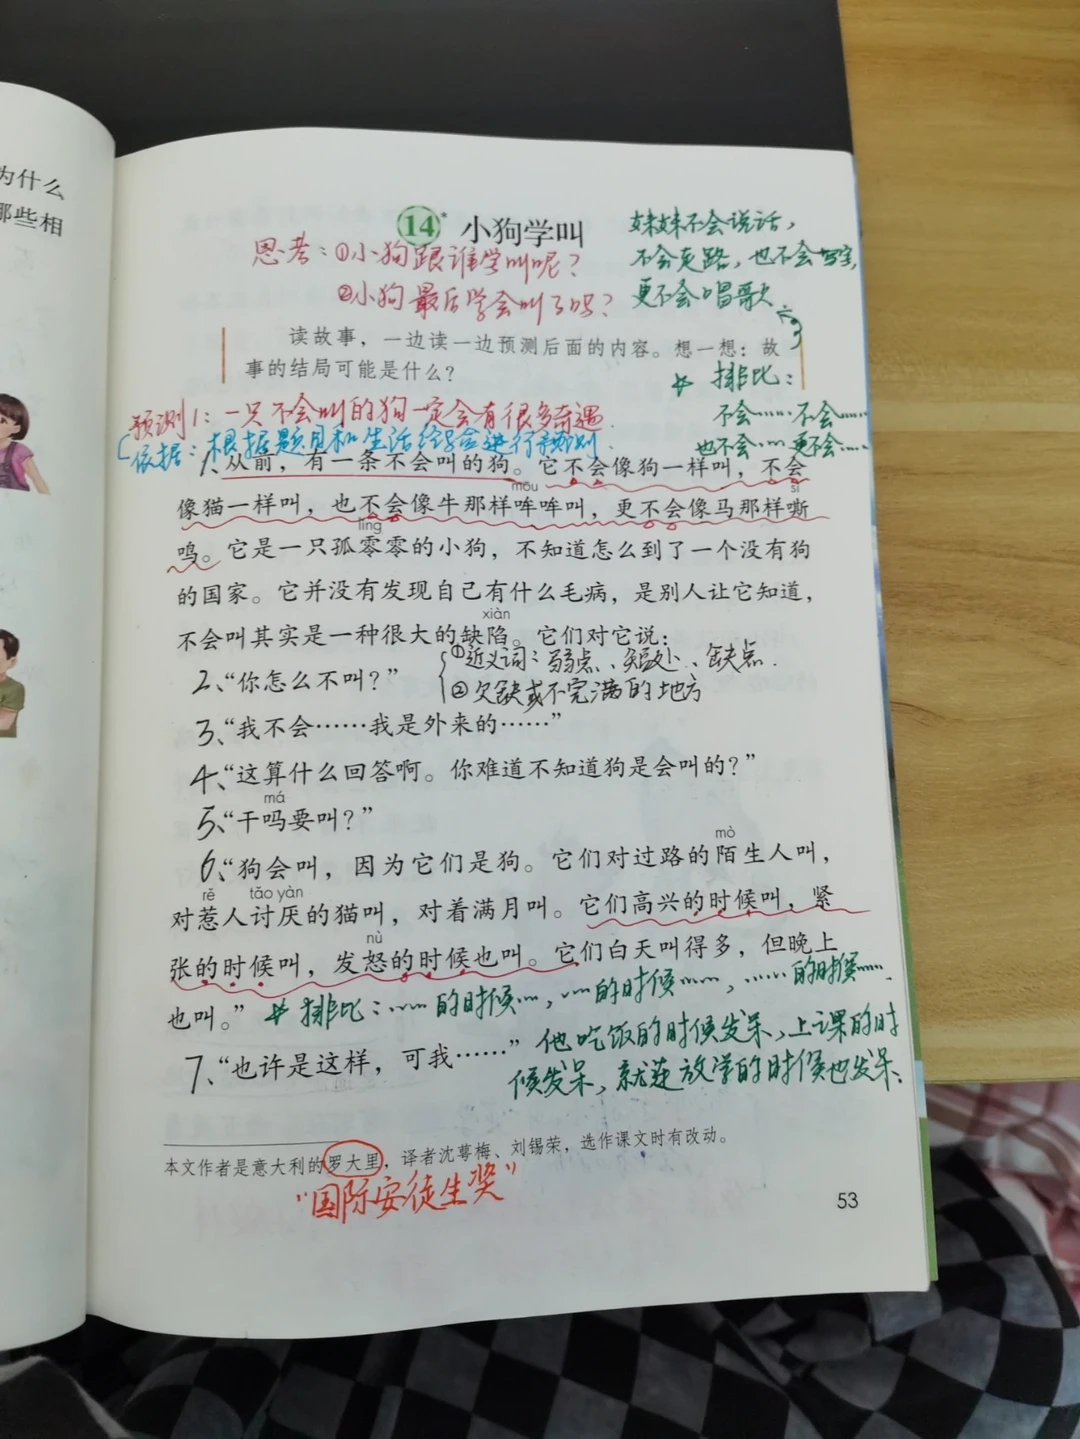 为什么
哪些相
14* 小狗学叫
思考：①小狗跟谁学叫呢？
②小狗最后学会叫了吗？
妹妹不会说话，
不会走路，也不会写字，
更不会唱歌
读故事，一边读一边预测后面的内容。想一想：故
事的结局可能是什么？
排比：
不会……不会……
也不会……更不会……
预测1：一只不会叫的狗一定会有很多奇遇.
依据：根据题目和生活经验进行预测.
1、从前，有一条不会叫的狗。它不会像狗一样叫，不会
mōu sī
像猫一样叫，也不会像牛那样哞哞叫，更不会像马那样嘶
líng
鸣。它是一只孤零零的小狗，不知道怎么到了一个没有狗
的国家。它并没有发现自己有什么毛病，是别人让它知道，
xiàn
不会叫其实是一种很大的缺陷。它们对它说：
①近义词：弱点、短处、缺点.
2、“你怎么不叫？”
②欠缺或不完满的地方
3、“我不会……我是外来的……”
4、“这算什么回答啊。你难道不知道狗是会叫的？”
má
5、“干吗要叫？”
mò
6、“狗会叫，因为它们是狗。它们对过路的陌生人叫，
rě tǎo yàn
对惹人讨厌的猫叫，对着满月叫。它们高兴的时候叫，紧
nù
张的时候叫，发怒的时候也叫。它们白天叫得多，但晚上
也叫。”
排比：……的时候…，……的时候……，……的时候……
7、“也许是这样，可我……”
他吃饭的时候发呆，上课的时
候发呆，就连放学的时候也发呆、
本文作者是意大利的罗大里，译者沈萼梅、刘锡荣，选作课文时有改动。
“国际安徒生奖”
53